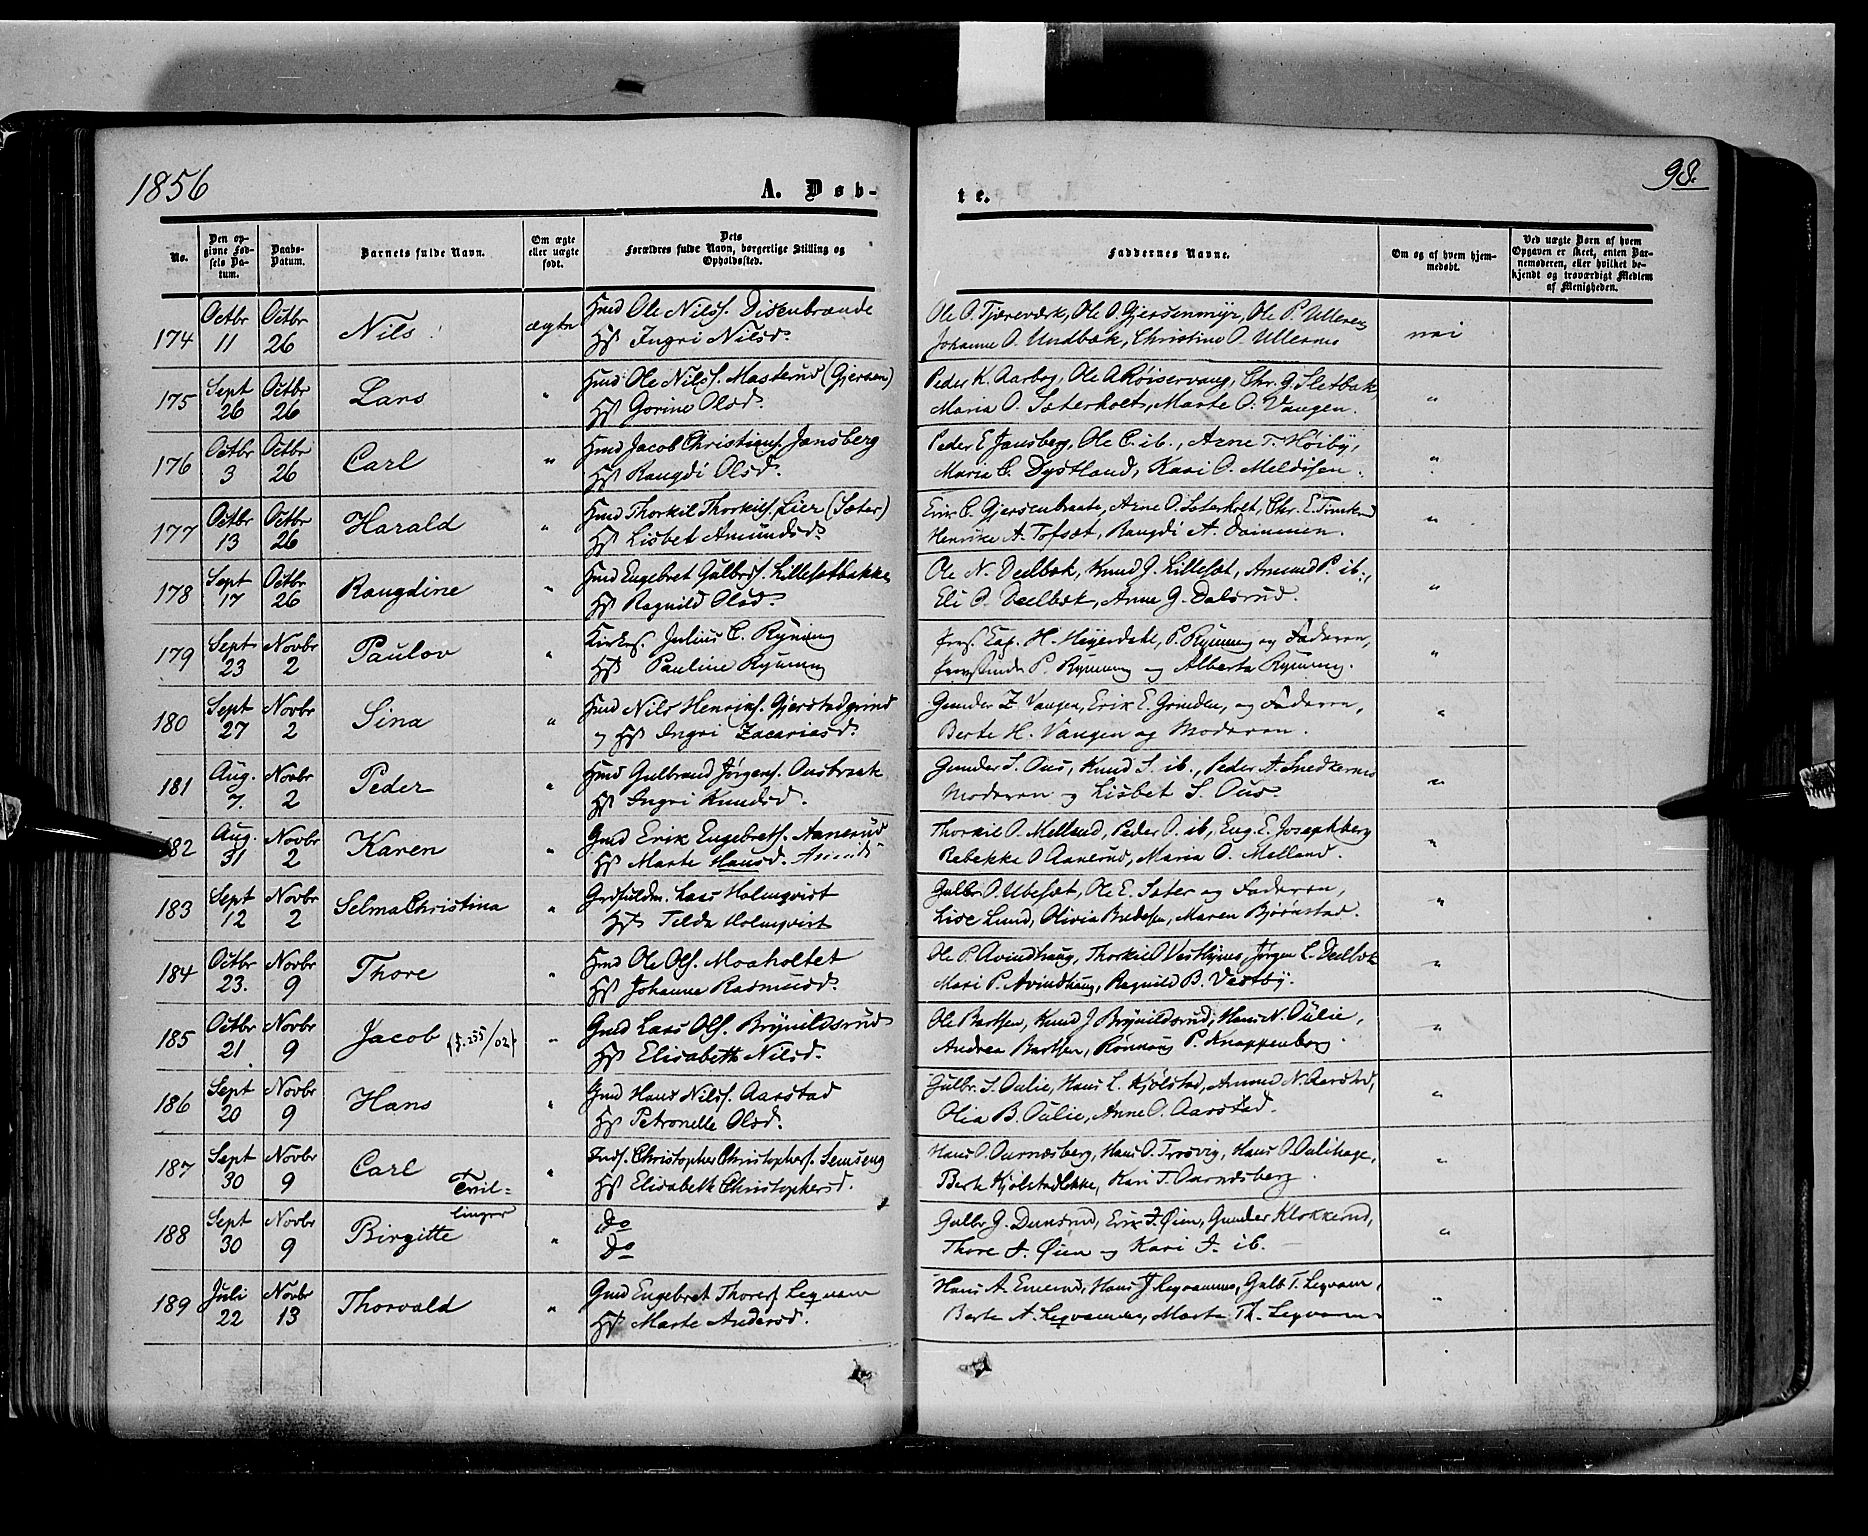 1856
A. Døb-
te.
98.
No.
Den op-
givne Fød-
sels Da-
tum.
Daabs-
Datum.
Barnets fulde Navn.
Om ægte
eller uægte
født.
Dets
Forældres fulde Navn, borgerlige Stilling og
Opholdssted.
Faddernes Navne.
Om og af hvem hjem-
medøbt.
Ved uægte Børn af hvem
Opgaven er skeet, enten Bar-
nemoderen, eller hvilket be-
kjendt og troværdigt Medlem
af Menigheden.
174
Octbr
11
Octbr
26
Nils
ægte
Hmd Ole Nilss. Disenbraade
Hst Ingri Nilsd.
Ole O. Tjæreværk, Ole O. Gjersenmyr, Ole P. Ulleren
Johanne O. Undbæk, Christine O. Ulleren
nei
175
Sept
26
Octbr
26
Lars
"
Hmd Ole Nilss. Masterud (Gjersen)
Hst Gorine Olsd.
Peder K. Aarbog, Ole A. Røiservang, Chr. G. Sletbak,
Maria O. Sæterholt, Marte O. Vangen.
"
176
Octbr
3
Octbr
26
Carl
"
Hmd Jacob Christians. Jansberg
Hst Rangdi Olsd.
Peder E. Jansberg, Ole C. ib., Arne T. Høiby,
Maria C. Dystland, Kari O. Meldisen.
"
177
Octbr
13
Octbr
26
Harald
"
Hmd Thorkil Thorkils. Lier (Sæter)
Hst Lisbet Amundsd.
Erik C. Gjersenbraate, Arne O. Sæterholt, Chr. E.
Henrike A. Tofsæt, Rangdi A. Dammen.
"
178
Sept
17
Octbr
26
Rangdine
"
Hmd Engebret Gulbrds. Lillesætbakke
Hst Ragnild Olsd.
Ole N. Deelbæk, Knud G. Lillesæt, Amund P. ib.,
Eli O. Deelbæk, Anne G. Dalsrud.
"
179
Sept
23
Novbr
2
Paulov
"
Kirkes. Julius C. Rynning
Hst Pauline Rynning
Cap. H. Heyerdahl, P. Rynning og Faderen,
P. Rynning og Alberta Rynning.
"
180
Sept
27
Novbr
2
Sina
"
Hmd Nils Henriks. Gjerstadgrind
Hst Ingri Zacariasd.
Gunder Z. Vangen, Erik E. Grinden, og Faderen,
Berte H. Vangen og Moderen.
"
181
Aug.
7.
Novbr
2
Peder
"
Hmd Gulbrand Jørgens. Ousbraak
Hst Ingri Knudsd.
Gunder S. Ous, Knud S. ib., Peder A. Snedkernes
Moderen og Lisbet S. Ous.
"
182
Aug.
31
Novbr
2
Karen
"
Gmd Erik Engebrets. Aanerud
Hst Marte Hansd.
Thorkil O. Melland, Peder O. ib, Eng. E. Josephberg
Rebekke O. Aanerud, Maria O. Melland.
"
183
Sept
12
Novbr
2
Selma Christina
"
Lars Holmqvist
Hst Tilda Holmqvist
Gulbr. O. Ubesæt, Ole E. Sæter og Faderen,
Lise Lund, Olivia Bredesen, Maren Bjørnstad.
"
184
Octbr
23.
Novbr
9
Thore
"
Hmd Ole Ols. Moaholtet
Hst Johanne Rasmusd.
Ole P. Avindhaug, Thorkil O. Vesthynes, Jørgen C. Deelbæk
Mari P. Avindhaug, Ragnild B. Vestby.
"
185
Octbr
21
Novbr
9
Jacob (f. 255/02)
"
Gmd Lars Ols. Brynildsrud
Hst Elisabeth Nilsd.
Ole Bertsen, Knud J. Brynildsrud, Hans N. Oulie,
Andrea Bertsen, Rønnaug P. Knappenborg.
"
186
Sept
20
Novbr
9
Hans
"
Gmd Hans Nilss. Aarstad
Hst Petronelle Olsd.
Gulbr. S. Oulie, Hans L. Kjølstad, Amund N. Aarstad,
Olia B. Oulie, Anne O. Aarstad.
"
187
Sept
30
Novbr
9
Carl
Tvil=
linger
"
Inds. Christopher Christophers. Semseng
Hst Elisabeth Christophersd.
Hans O. Ournæsberg, Hans O. Trosvig, Hans O. Oulihage,
Berte Kjølstadløkke, Kari T. Ournæsberg.
"
188
Sept
30
Novbr
9
Birgitte
"
Do
Do
Gulbr. G. Dunsrud, Erik J. Øien, Gunder Klokkerud,
Thore J. Øien og Kari J. ib.
"
189
Juli
22
Novbr
13
Thorvald
"
Gmd Engebret Thores. Leqvam
Hst Marte Andersd.
Hans A. Emerud, Hans J. Leqvamnes, Gulb. T. Leqvam,
Berte A. Leqvamnes, Marte Th. Leqvam.
"